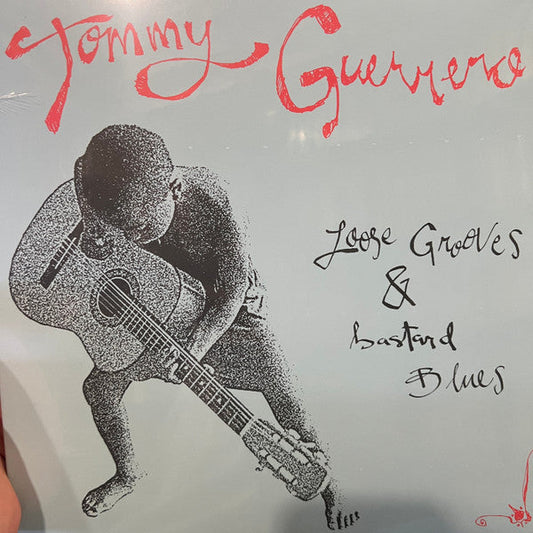 Tommy Guerrero
Loose Grooves
&
bastard
Blues